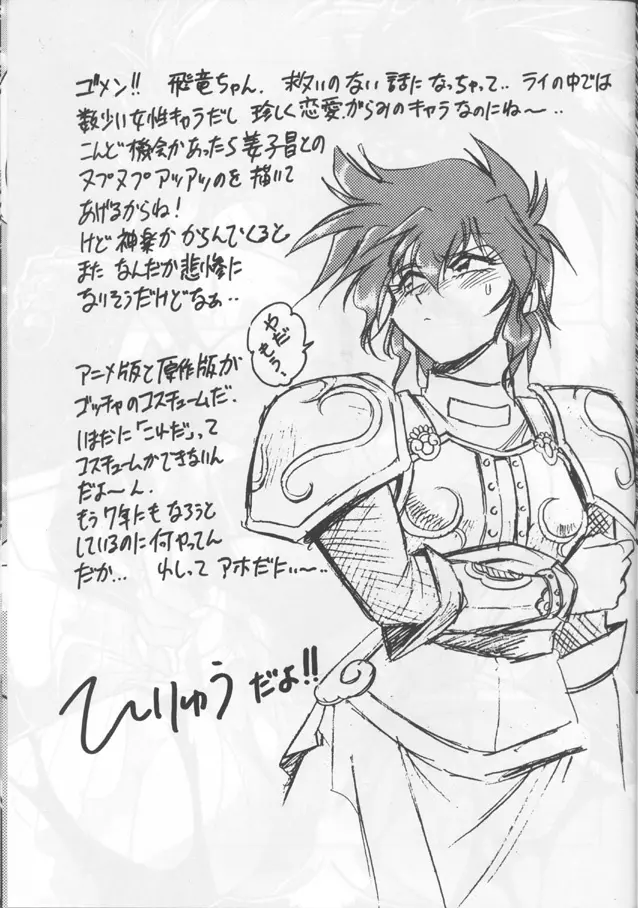 ゴメン!! 飛竜ちゃん. 救いのない話になっちゃって.. ライの中では
数少い女性キャラだし 珍しく恋愛がらみのキャラなのにね〜..
こんど機会があったら姜子昌との
ヌプヌプアツアツのを描いて
あげるからね!
けど神楽がからんでくると
また なんだか悲惨に
なりそうだけどなぁ..
やだ
もう.
アニメ版と原作版が
ゴッチャのコスチュームだ.
いまだに「これだ」って
コスチュームができないん
だよ〜ん.
もう7年にもなろうと
しているのに何やってん
だか... わしって アホだに〜..
ひりゅう だよ!!